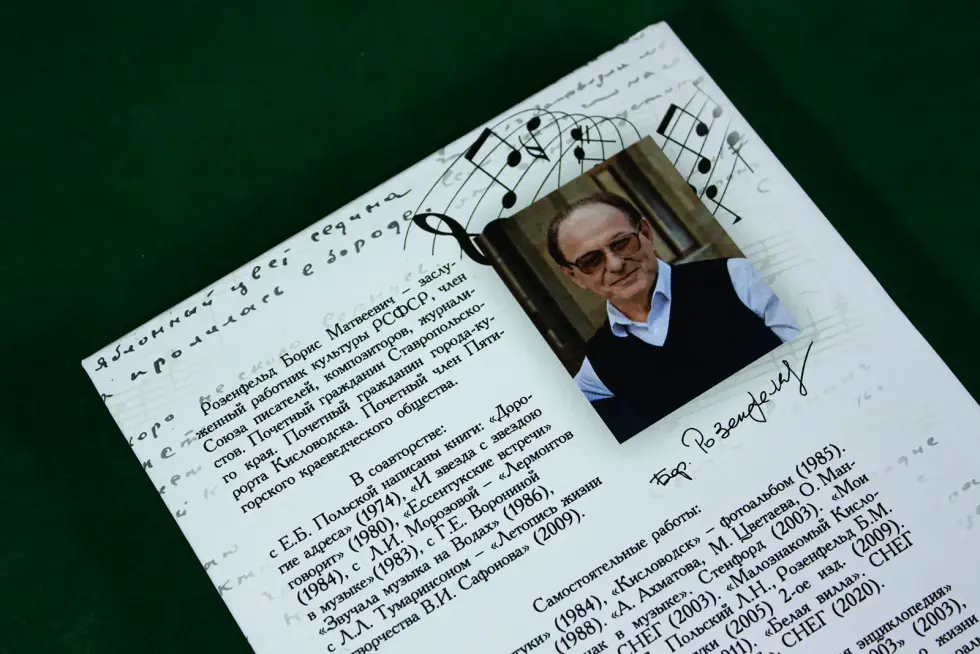 яблонный цвет седина
пролилась в бороде.
Розенфельд Борис Матвеевич – заслу-
женный работник культуры РСФСР, член
Союза писателей, композиторов, журнали-
стов. Почетный гражданин Ставропольско-
го края. Почетный гражданин города-ку-
рорта Кисловодска. Почетный член Пяти-
горского краеведческого общества.
В соавторстве:
с Е.Б. Польской написаны книги: «Доро-
гие адреса» (1974), «И звезда с звездою
говорит» (1980), «Ессентукские встречи»
(1984), с Л.И. Морозовой – «Лермонтов
в музыке» (1983), с Г.Е. Ворониной
«Звучала музыка на Водах» (1986),
с Л.Л. Тумаринсоном – «Летопись жизни
творчества В.И. Сафонова» (2009).
Бор Розенфельд
Самостоятельные работы:
уки» (1984), «Кисловодск» – фотоальбом (1985).
(1988). «А. Ахматова, М. Цветаева, О. Ман-
в музыке». Стенфорд (2003). «Мои
СНЕГ (2003), «Малознакомый Кисло-
Польский Л.Н., Розенфельд Б.М.
(2005) 2-ое изд. (2009).
«Белая вилла». СНЕГ
СНЕГ (2020).
энциклопедия»
(2003),
жизни